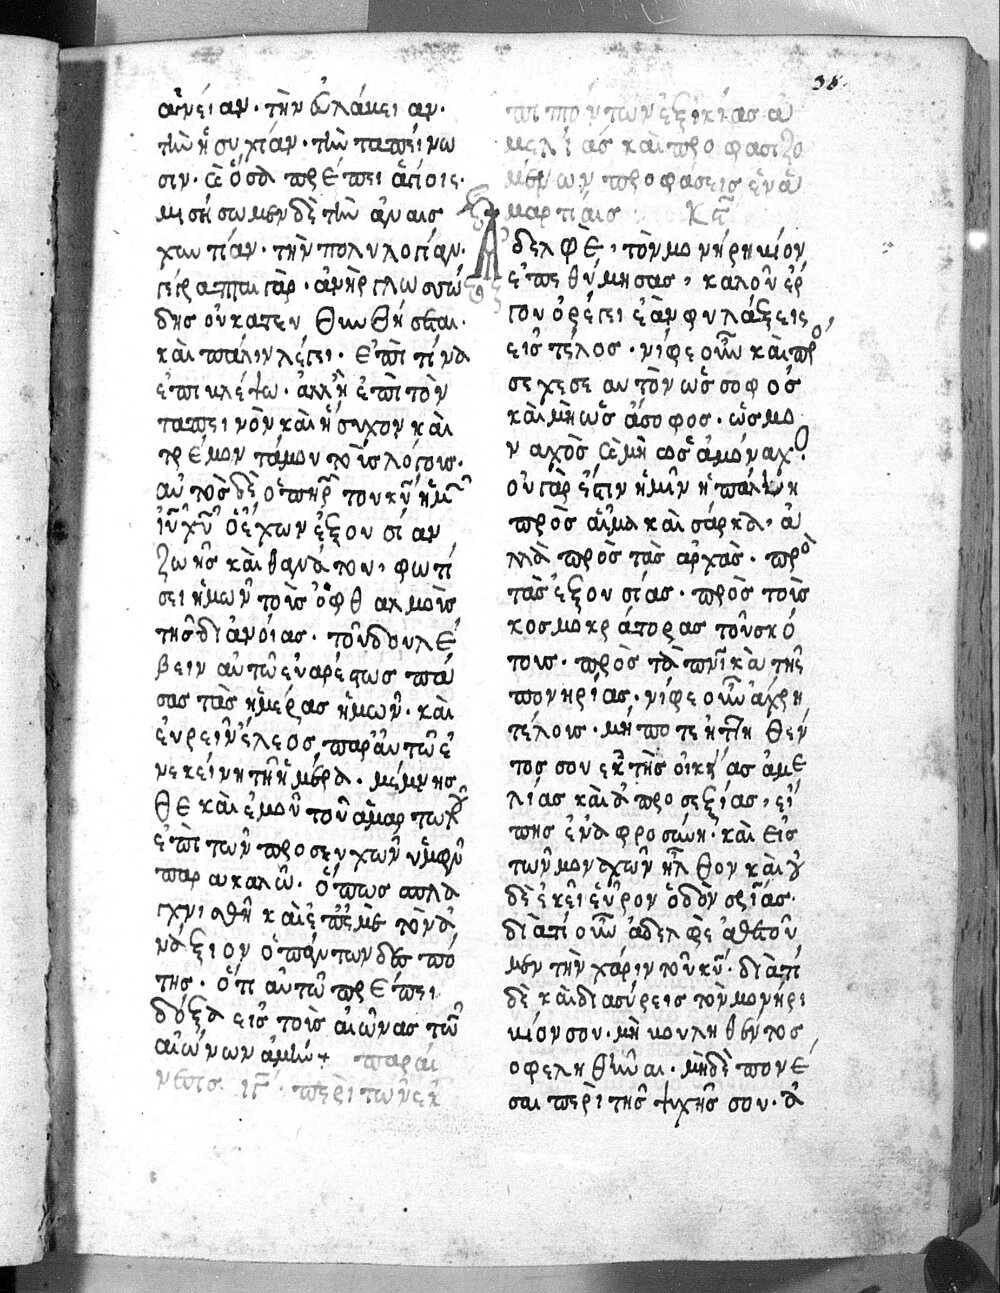 38.
ἁγνείαν· τὴν εὐλάβειαν·
τὴν ἡσυχίαν· τὴν ταπείνω
σιν· ὅσα πρέπει ἁγίοις·
μισήσωμεν δὲ τὴν ἀναισ
χυντίαν· τὴν πολυλογίαν·
γέγραπται γὰρ· ἀνὴρ γλωσσώ
δης οὐ κατευθυνθήσεται·
καὶ πάλιν λέγει· ἐπὶ τίνα
ἐπιβλέψω· ἀλλ' ἢ ἐπὶ τὸν
ταπεινὸν καὶ ἡσύχον καὶ
τρέμοντά μου τοὺς λόγους·
αὐτὸς δὲ ὁ σωτὴρ τοῦ κυ ἡμῶν
ιϋ χυ ὁ ἔχων ἐξουσίαν
ζωῆς καὶ θανάτου, φωτί
σει ἡμῶν τοὺς ὀφθαλμοὺς
τῆς διανοίας· τοῦ δουλέ
βειν αὐτῶ ἐναρέτως πά
σας τὰς ἡμέρας ἡμῶν· καὶ
εὑρεῖν ἔλεος παρ' αὐτῶ ἐ
ν ἐκείνη τῆ ἡμέρα· μέμνησ
θε καὶ ἐμοῦ τοῦ ἁμαρτωλοῦ
ἐπὶ τῶν προσευχῶν ὑμῶν
παρακαλῶ· ὅπως
καὶ ἐπ' ἐμὲ τὸν ἀ
νάξιον ὁ πάντων δεσπό
της· ὅτι αὐτῶ πρέπει
δόξα εἰς τοὺς αἰῶνας τῶν
αἰώνων ἀμήν + παραί
νεσις ιγ· περὶ τῶν ἐκ
πιπτόντων ἐξ οἰκίας ἀ
μελείας καὶ προφασιζο
μένων προφάσεις ἐν ἁ
μαρτίαις
Ἀδελφὲ, τὸν μονήρη βίον
ἐπεθύμησας, καλοῦ ἔρ
γου ὀρέγει ἐὰν φυλάξεις
εἰς τέλος· νίφε οὖν καὶ πρό
σεχε σεαυτὸν ὡς σοφὸς
καὶ μὴ ὡς ἄσοφος· ὡς μο
ναχὸς καὶ μὴ ὡς ἀμόναχος
οὐ γάρ ἐστιν ἡμῖν ἡ πάλη
πρὸς αἷμα καὶ σάρκα, ἀλ
λὰ πρὸς τὰς ἀρχὰς· πρὸς
τὰς ἐξουσίας· πρὸς τοὺς
κοσμοκράτορας τοῦ σκό
τους· πρὸς τὰ πνικὰ τῆς
πονηρίας· νίφε οὖν ἄχρη
τέλους· μή ποτε ἡττηθέν
τος σου ἐκ τῆς οἰκείας ἀμε
λίας καὶ ἀπροσεξίας, εἴ
πης ἐν ἀφροσύνη· καὶ εἰς
τῶν μοναχῶν ἦλθον καὶ οὐ
δὲ ἐκεῖ εὗρον ὁδὸν σσίας·
διατί οὖν ἀδελφὲ ἀθετοῦ
μεν τὴν χάριν τοῦ κυ· διατί
δὲ καὶ διασύρεις τὸν μονήρι
βίον σου· μὴ βουληθέντος
ὀφεληθῆναι· μηδὲ πονέ
σαι περὶ τῆς ψυχῆς σου· ἀ